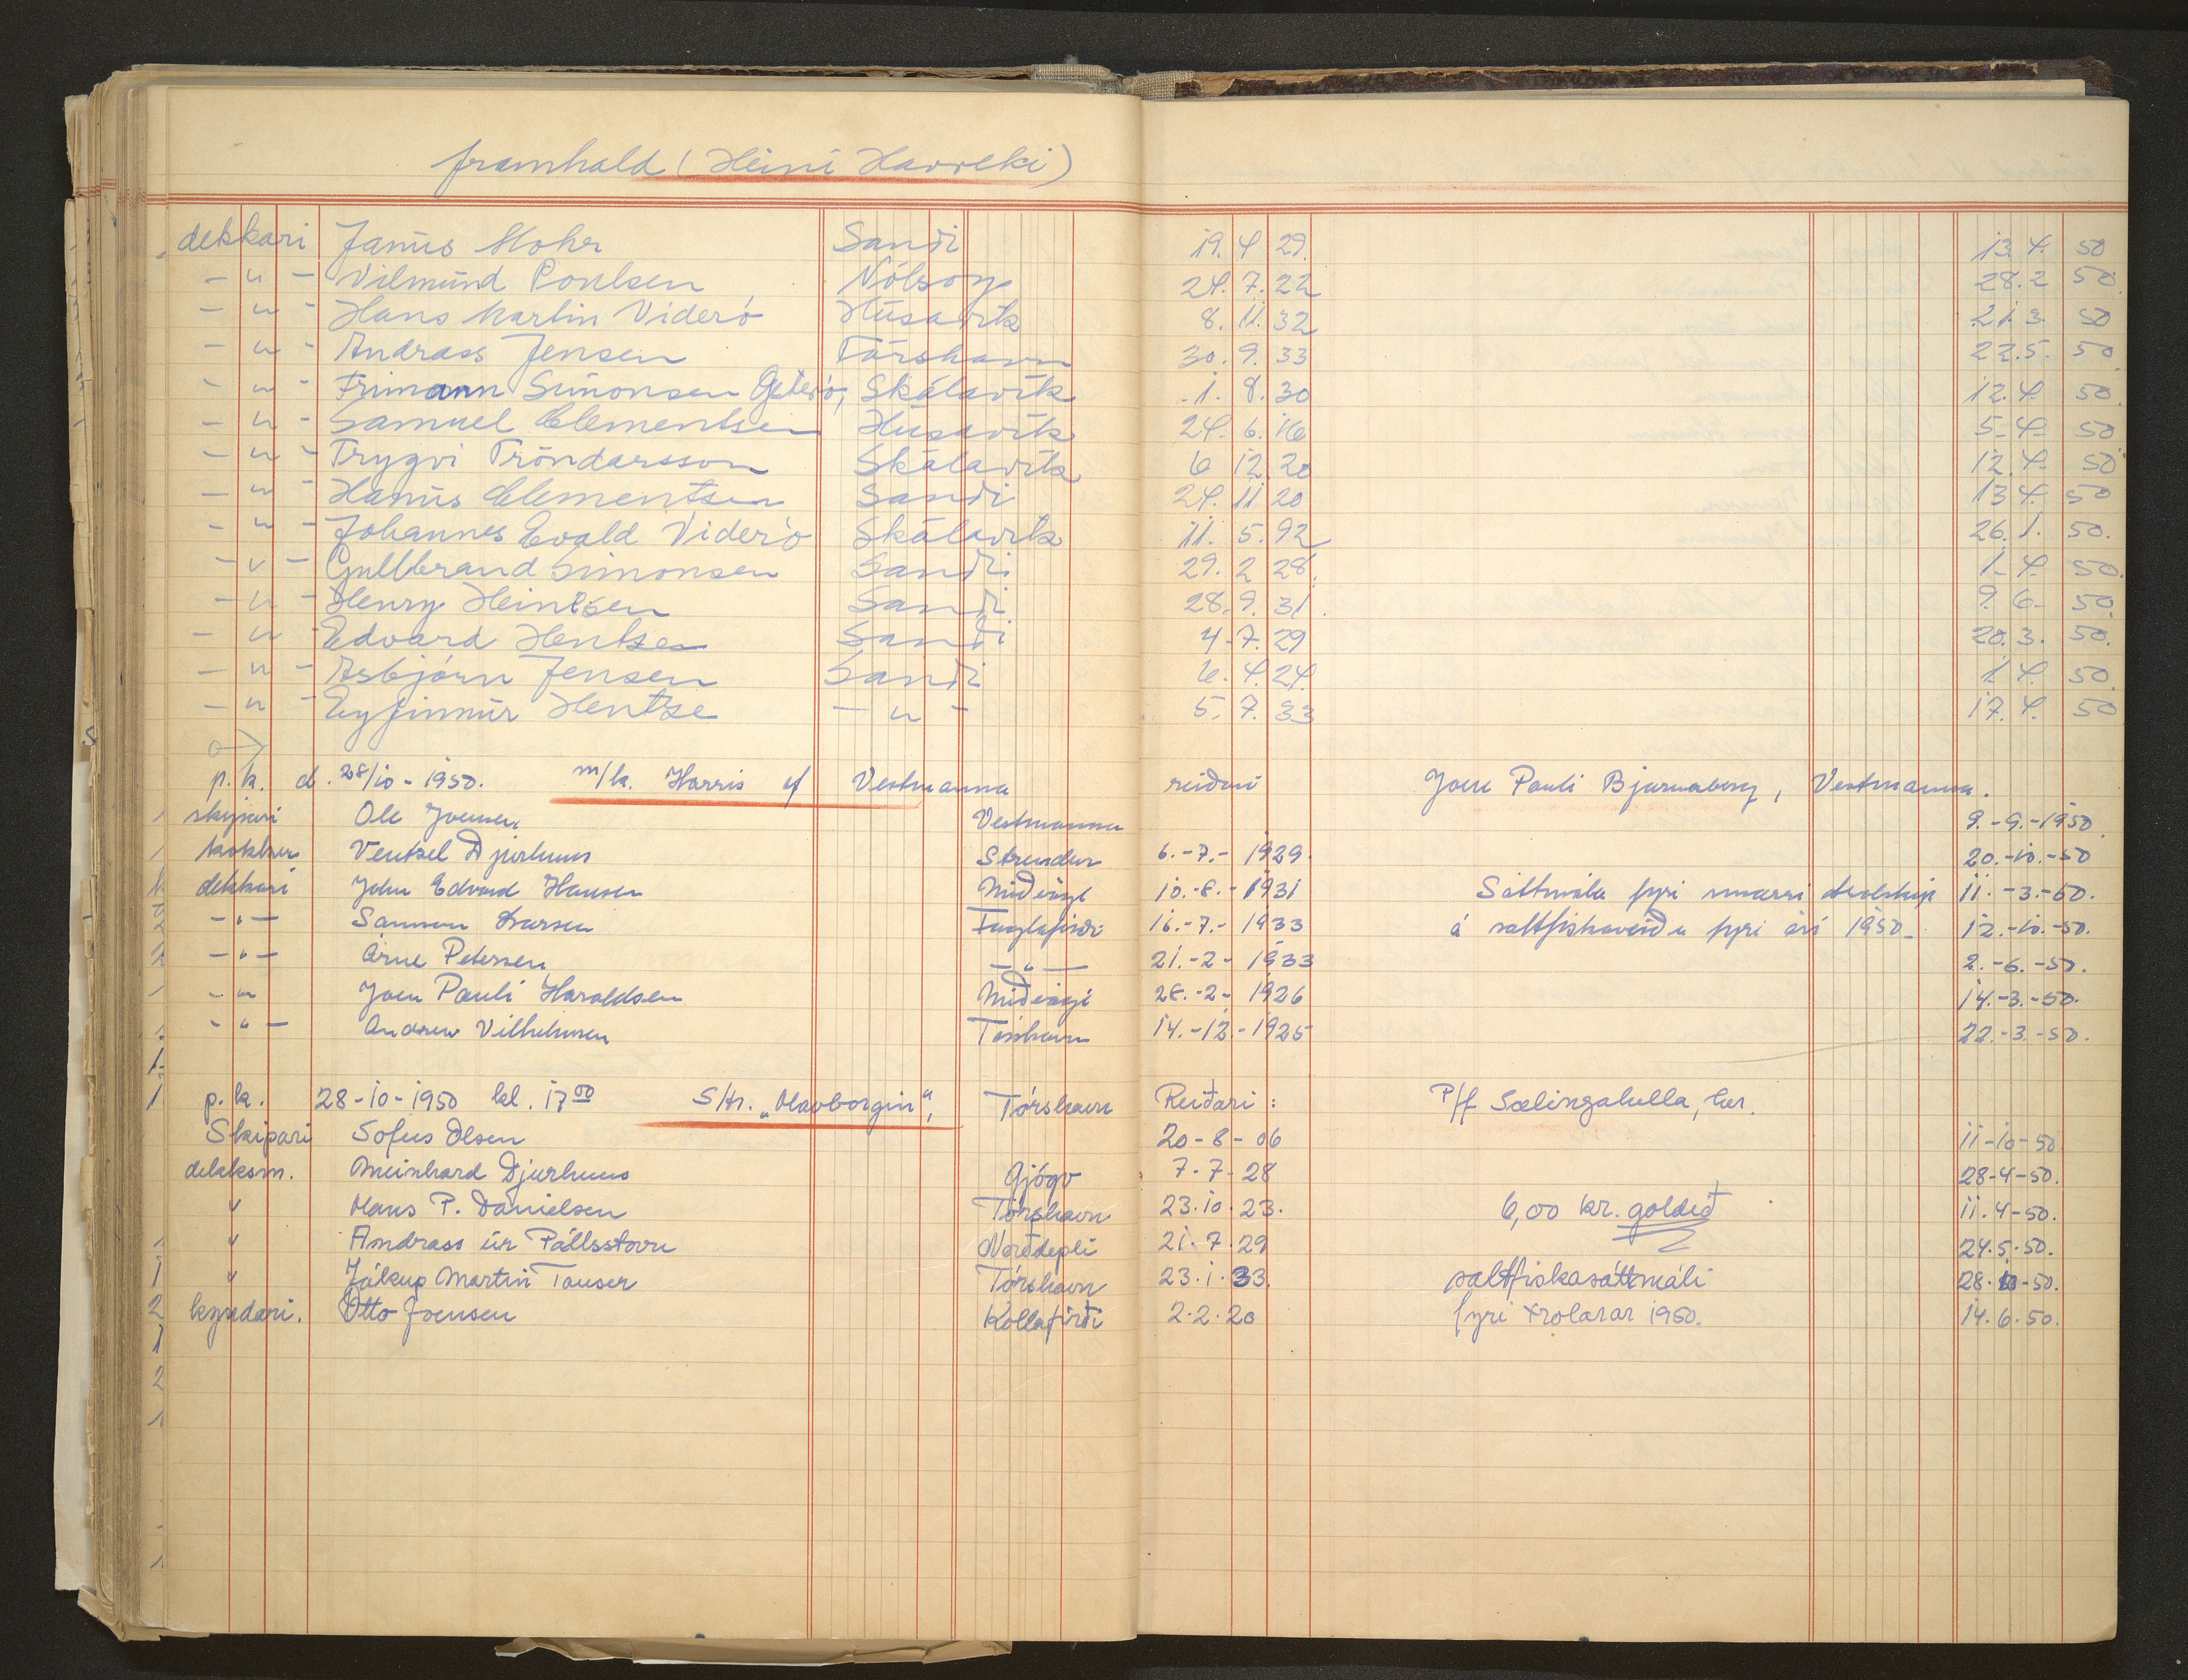 framhald (Heini Havreki)
dekkari Janus Mohr Sandi 19. 4 29. 13. 4. 50
- " - Vilmund Poulsen Nólsoy 24. 7. 22 28. 2 50
- " - Hans Martin Viderö Húsavík 8. 11. 32 21. 3. 50
- " - Andrass Jensen Tórshavn 30. 9. 33 22. 5. 50
- " - Frimann Simonsen Skálavík 1. 8. 30 12. 4. 50.
- " - Samuel Clementsen Húsavík 24. 6. 16 5- 4- 50
- " - Trygvi Tróndarsson Skálavík 6 12. 20 12. 4- 50
- " - Hanus Clementsen Sandi 24. 11 20 13 4. 50
- " - Johannes Evald Viderö Skálavík 11. 5. 92 26. 1. 50.
- " - Gullbrand Simonsen Sandi 29. 2 28. 1- 4. 50.
- " - Henry Heintsen Sandi 28. 9. 31. 9. 6- 50.
- " - Edvard Hentsen Sandi 4-7. 29 20. 3. 50.
- " - Asbjörn Jensen Sandi 6. 4. 24. 1 4. 50.
- " - Eyfinnur Hentze - " - 5. 7. 33 17. 4. 50
p.k. d. 28/10 - 1950. m/k. Harris af Vestmanna reiðari Joen Pauli Bjarnaberg, Vestmanna.
skipari Ole Joensen Vestmanna 9.-9.-1950.
kokkur Ventzel Djurhuus Strendur 6.-7.- 1929. 20.-10.-50
dekkari John Edvard Hansen Miðvági 10.-8.- 1931 Sáttmála fyri smærri drolskip 11.-3.-50.
- " - Samson Larsen Fuglafirði 16.-7.- 1933 á saltfiskaveiðu fyri árið 1950. 12.-10.-50.
- " - Arne Petersen - " - 21.-2- 1933 2.-6.-50.
- " Joen Pauli Haraldsen Miðvági 28.-2- 1926 14.-3.-50.
- " - Andrew Vilhelmsen Tórshavn 14.-12.-1925 22.-3.-50.
p.k. 28-10-1950 kl. 17 00 S/tr. „Havborgin", Tórshavn Reiðari: P/f Sælingahella, her.
Skipari Sofus Olsen 20-8-06 11-10-50
dekksm. Meinhard Djurhuus Gjógv 7-7-28 28-4-50.
" Hans P. Danielsen Tórshavn 23.10.23. 6,00 kr. goldið 11.4-50.
" Andrass úr Pállsstovu Norðdepli 21.7.29 24.5.50.
" Jákup Martin Tauser Tórshavn 23.1.33. saltfiskasáttmáli 28.10-50.
kyndari. Otto Joensen Kollafirði 2.2.20 fyri trolarar 1950. 14.6.50.